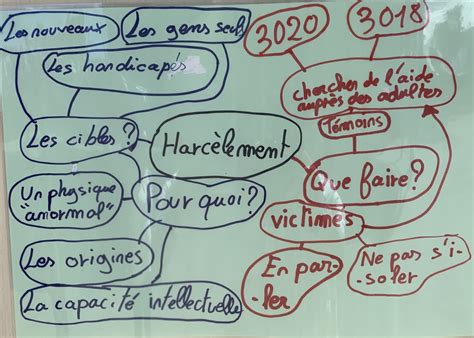 Les nouveaux
Les gens seuls
3020
3018
Les handicapés
chercher de l'aide
auprès des adultes
Témoins
Les cibles ?
Harcèlement
Que faire ?
Un physique
"anormal"
Pourquoi ?
victimes
Les origines
En par-
-ler
Ne pas s'i-
-soler
La capacité intellectuelle